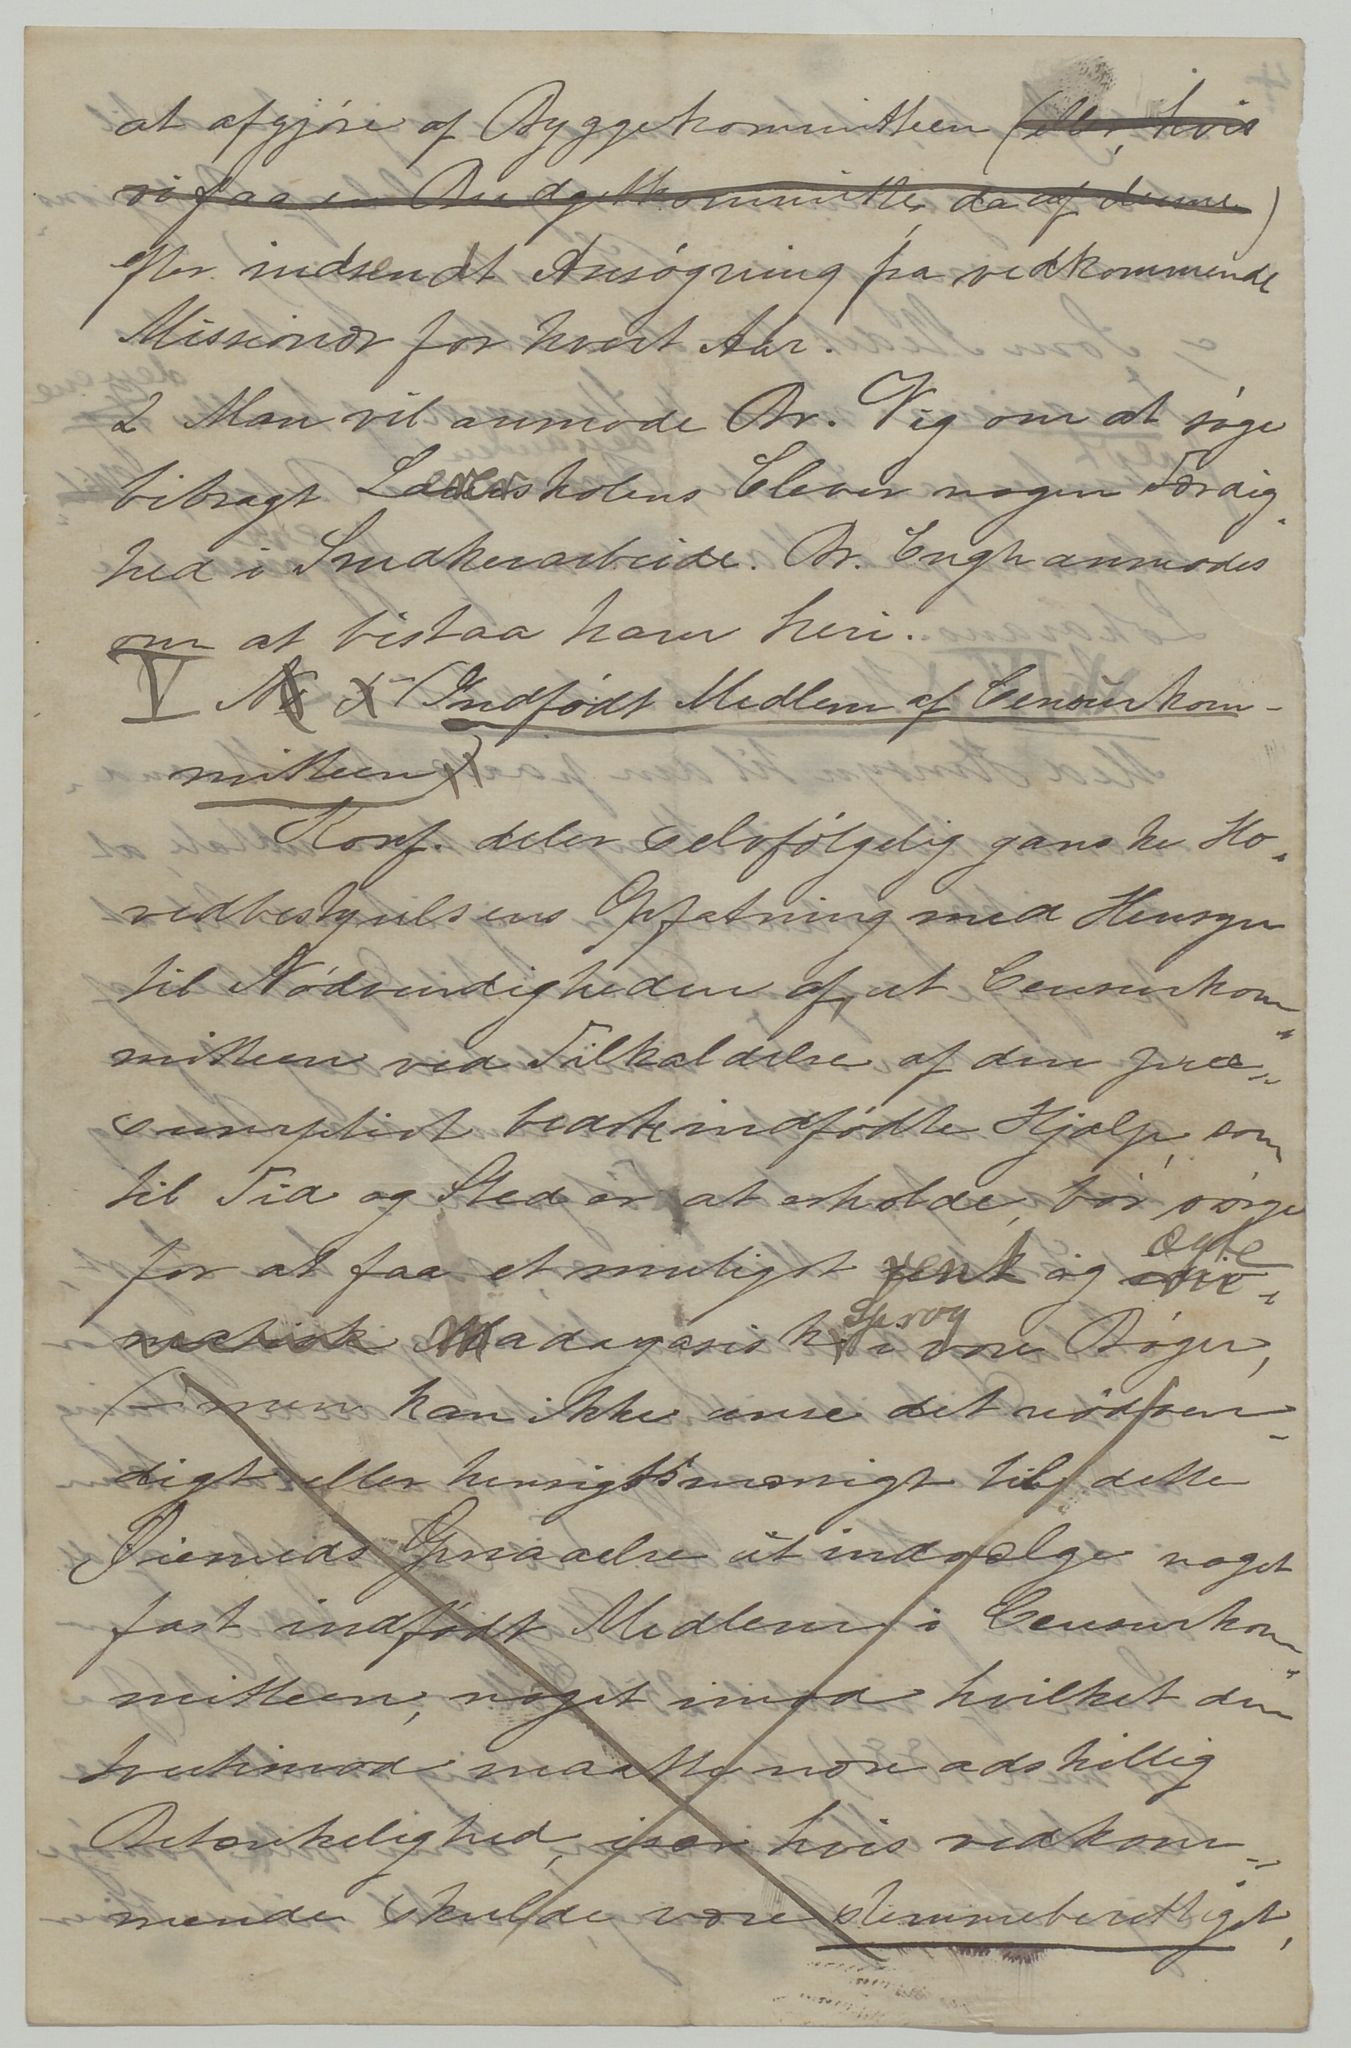 at afgjöre af Byggekommitteen (eller, hvis
vi faa en Budgetkommitte, da af denne)
efter indsendt Ansøgning fra vedkommende
Missionær for hvert Aar.
2 Man vil anmode Br. Vig om at søge
bibragt Lærerskolens Elever nogen Færdig-
hed i Snedkerarbeide. Br. Engh anmodes
om at bistaa ham heri.
V No 5 (Indfødt Medlem af Censurkom-
mitteen)
Konf. deler selvfölgelig ganske Ho-
vedbestyrelsens Opfatning med Hensyn
til Nödvendigheden af, at Censurkom-
mitteen ved Tilkaldelse af den præ-
sumptivt bedste indfödte Hjælp, som
til Tid og Sted er at erholde, bör sörge
for at faa et muligst rent og ægte
Madagassisk Sprog i vore Böger,
(- men kan ikke anse det nödven-
digt eller hensigtsmæssigt til dette
Öiemeds Opnaaelse at indvælge noget
fast indfödt Medlem i Censurkom-
mitteen, noget imod hvilket der
tvertimod maatte være adskillig
Betænkelighed, især hvis vedkom-
mende skulde være stemmeberettiget,